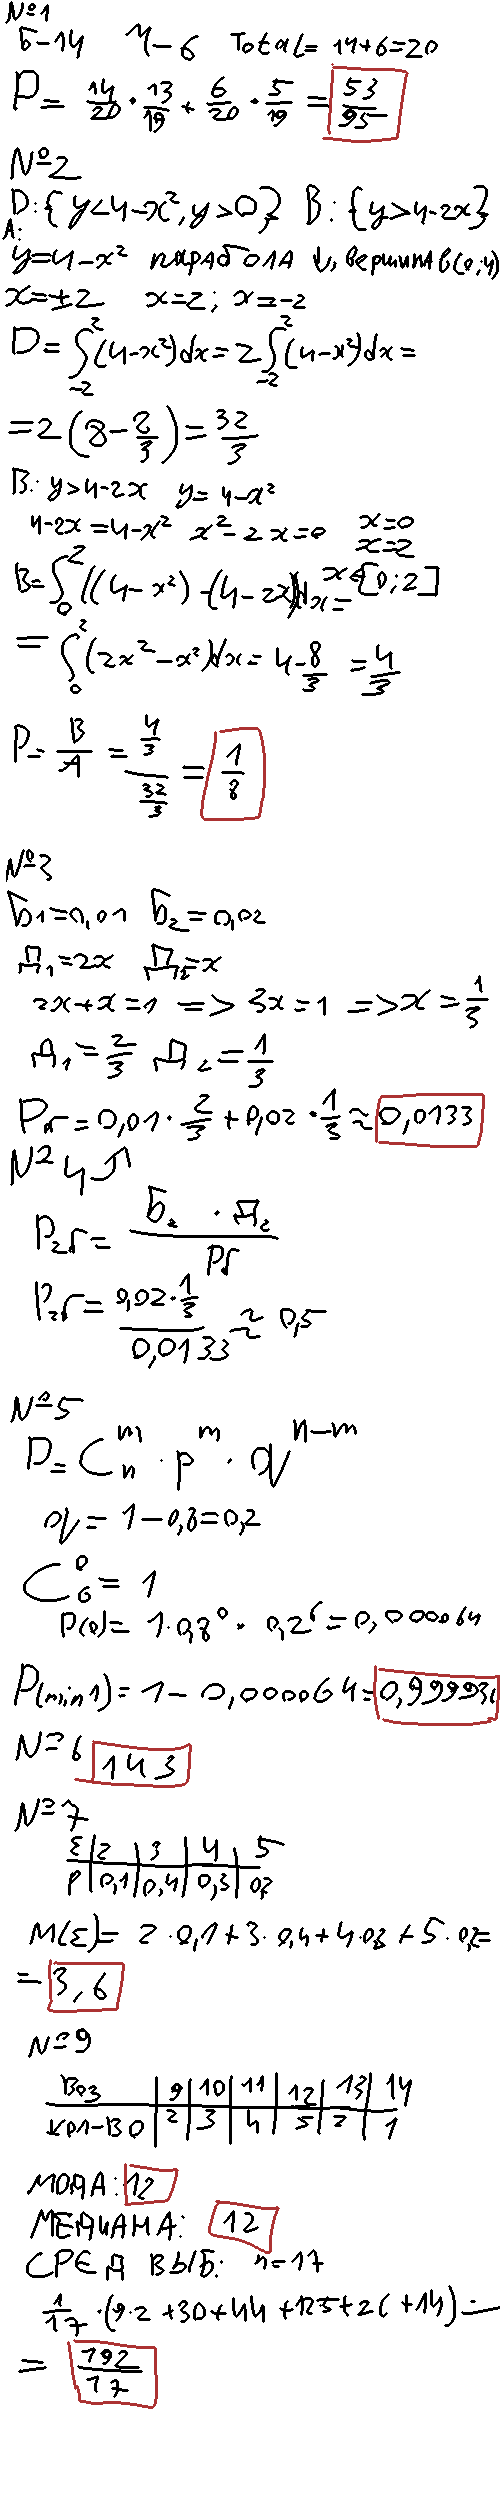 №1
Б-14 Ч-6 Total= 14+6=20
P= 14/20 · 13/19 + 6/20 · 5/19 = 53/95
№2
D:{y<4-x², y>0} B: {y>4-2x}
A:
y=4-x² парабола ↓, вершина в(0;4)
x=±2 x=2; x=-2
D= ∫₋₂² (4-x²)dx = 2∫₋₂² (4-x²)dx =
=2(8-8/3)=32/3
B: y>4-2x y=4-x²
4-2x=4-x² x²-2x=0 x=0
x=2
B=∫₀² ((4-x²)-(4-2x))dx= x∈[0;2]
= ∫₀² (2x²-x²)dx= 4-8/3 = 4/3
P= B/A = 4/3 / 32/3 = 1/8
№3
Б1=0,01 Б₂=0,02
Д₁=2x Д₂=x
2x+x=1 => 3x=1 => x=1/3
Д₁=2/3 Д₂=1/3
Pб=0,01·2/3+0,02·1/3≈0,0133
№4
P₂б= Б₂ · Д₂ / Pб
P₂б= 0,02·1/3 / 0,0133 ≈ 0,5
№5
P= Cₙᵐ · pᵐ · qⁿ⁻ᵐ
q= 1-0,8=0,2
C₆⁰= 1
P(0)= 1·0,8⁰· 0,2⁶=0,000064
P(min1)=1-0,000064=0,999936
№6 143
№7
Σ 2 3 4 5
P 0,1 0,4 0,3 0,2
M(Σ)= 2·0,1+3·0,4+4·0,3+5·0,2=
=3,6
№9
Воз 9 10 11 12 13 14
кол-во 2 3 4 5 2 1
МОДА: 12
МЕДИАНА: 12
СРЕД ВЫБ: n=17
1/17 ·(9·2+30+44+ +2( +14)=
= 192/17